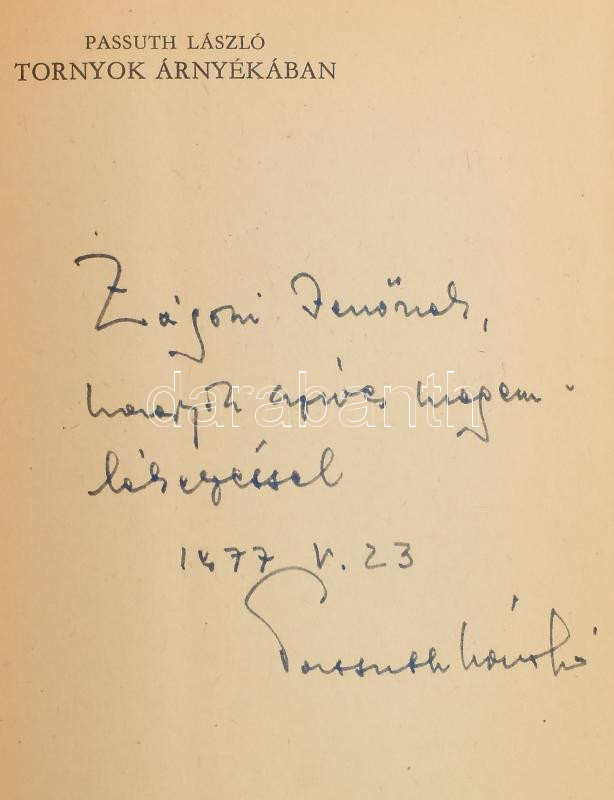 PASSUTH LÁSZLÓ
TORNYOK ÁRNYÉKÁBAN
Zágoni Jenőnek,
szíves megem-
lékezéssel
darabanth
1977 V. 23
Passuth László